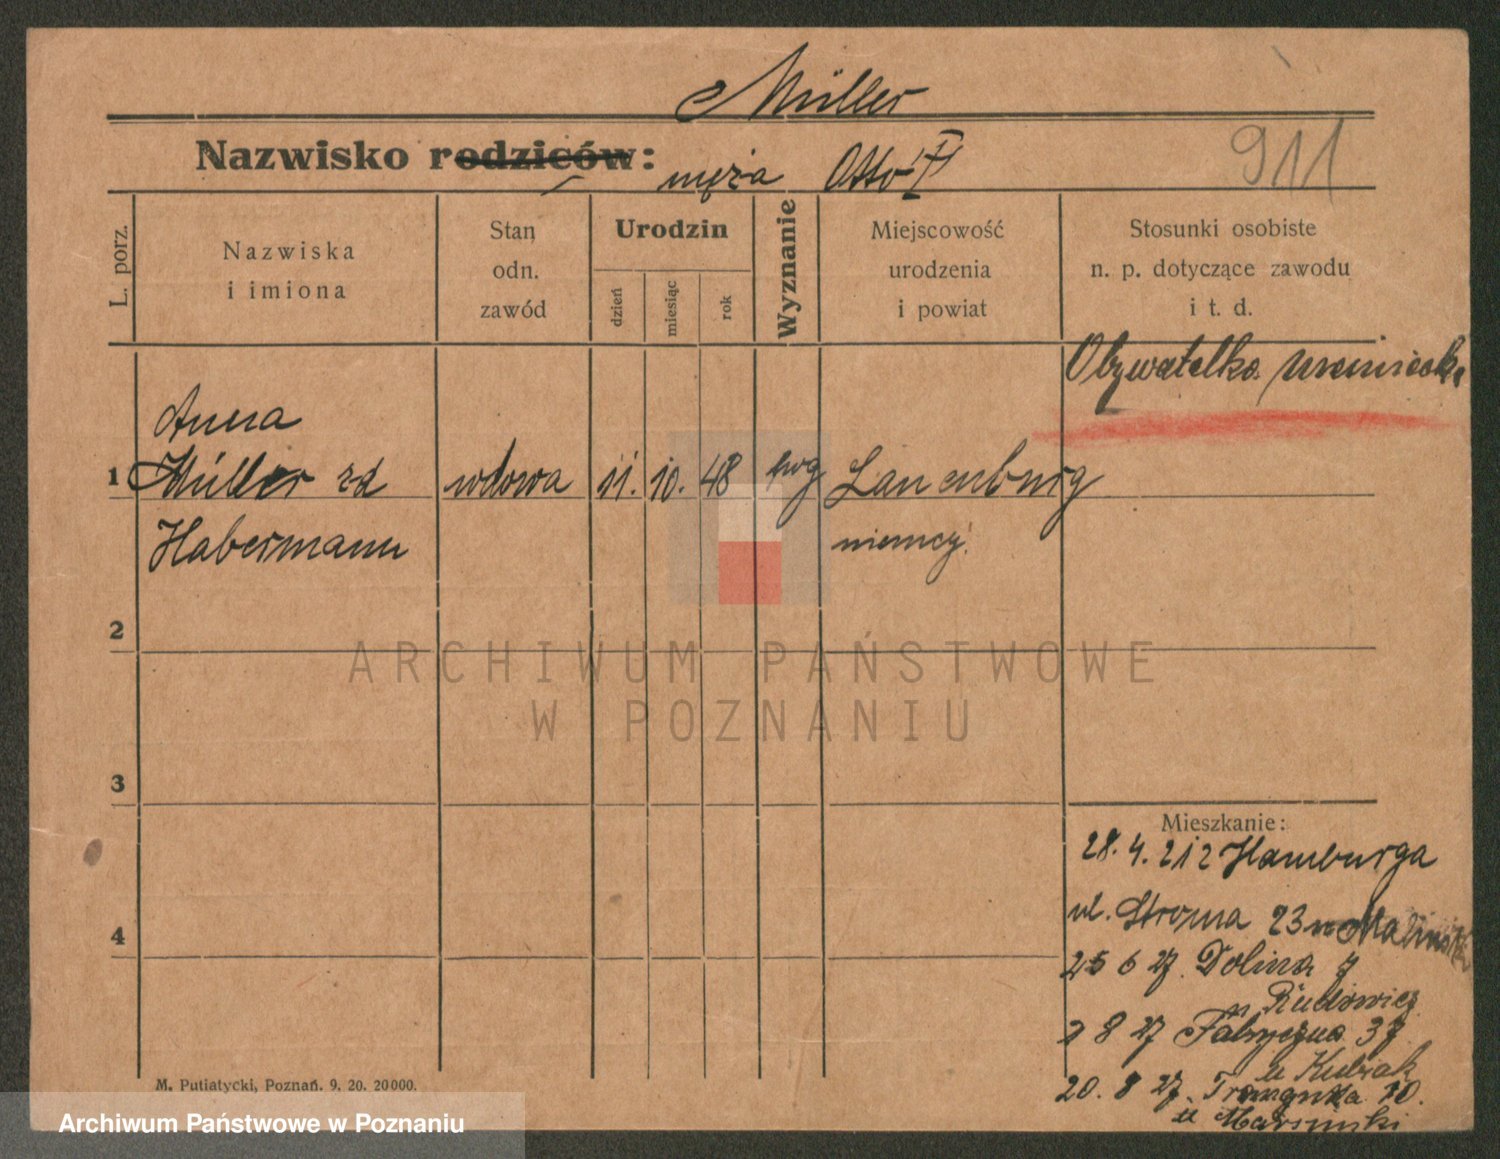 Müller
Nazwisko rodziców: męża Otto
911
L. porz.
Nazwiska
i imiona
Stan
odn.
zawód
Urodzin
dzień
miesiąc
rok
Wyznanie
Miejscowość
urodzenia
i powiat
Stosunki osobiste
n. p. dotyczące zawodu
i t. d.
Obywatelka niemiecka
Anna
1 Müller zd wdowa 11. 10. 48 ewg Lauenburg
Habermann niemcy
2
3
4
Mieszkanie:
28. 4. Hamburga
ul. Stroma 23
25 6 27. Dolina 7
u Budowicz
2 8 27 Fabryczna 37
u Kubiak
20. 8 27. 10.
u
M. Putiatycki, Poznań. 9. 20. 20000.
ARCHIWUM PAŃSTWOWE
W POZNANIU
Archiwum Państwowe w Poznaniu